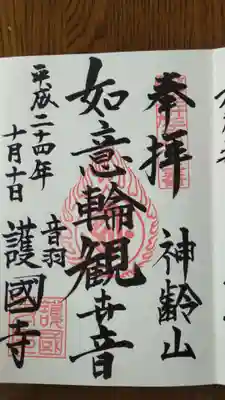 奉拝
神齢山
如意輪観世音
平成二十四年
十月十日
音羽
護國寺